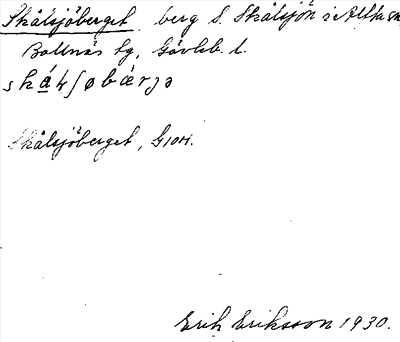 Skålsjöberget, berg S. Skålsjön i Alfta sn
Bollnäs tg, Gävleb. l.
skálʃøbærjə
Skålsjöberget, G104.
Erik Eriksson 1930.